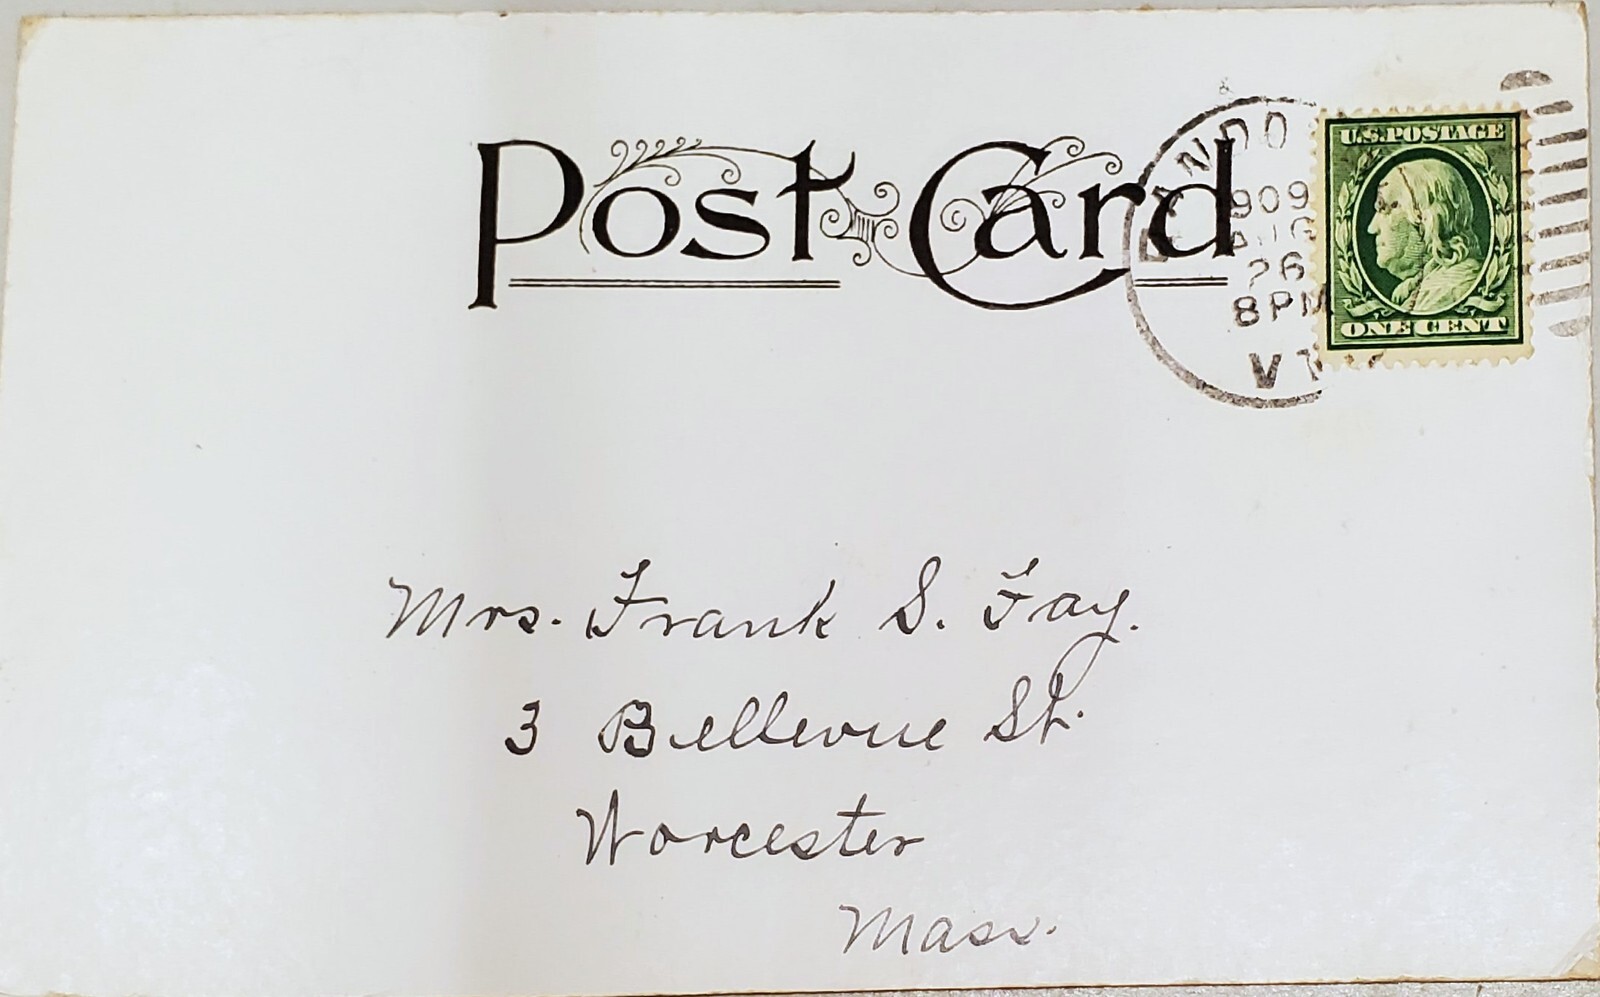 Post Card
1909
AUG
26
8 PM
VT.
U.S. POSTAGE
ONE CENT
Mrs. Frank S. Fay.
3 Bellevue St.
Worcester
Mass.